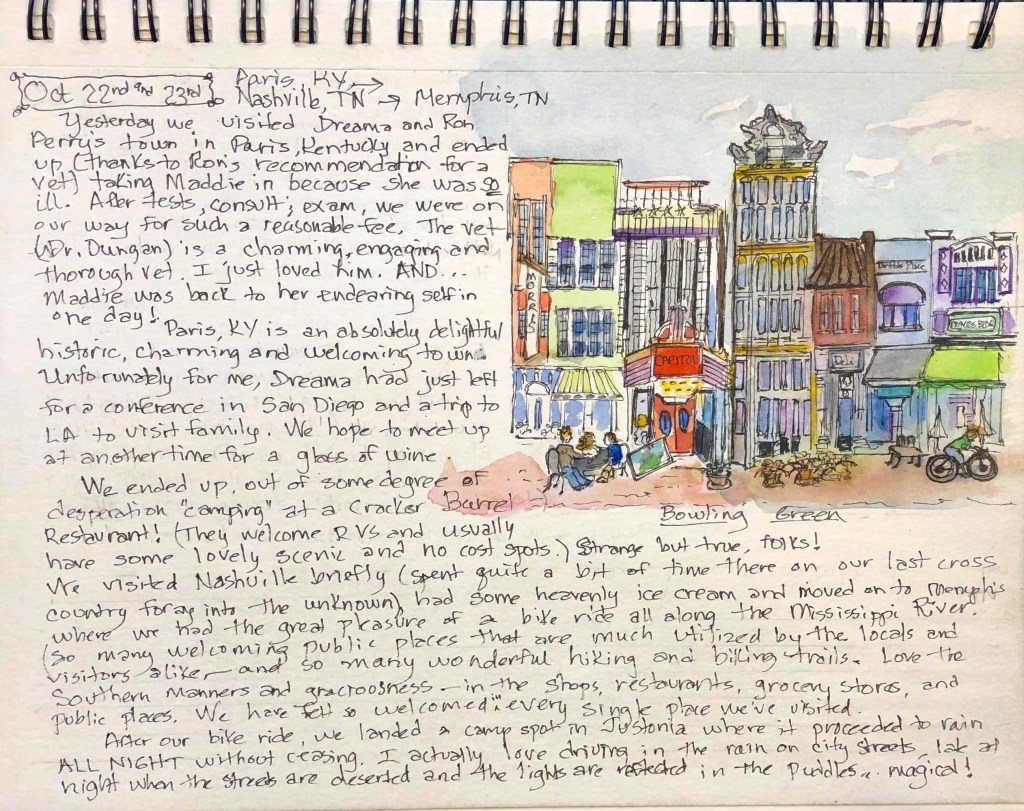 Oct 22nd and 23rd
Paris, KY →
Nashville, TN → Memphis, TN
Yesterday we visited Dreama and Ron
Perry's town in Paris, Kentucky and ended
up, (thanks to Ron's recommendation for a
vet) taking Maddie in because she was so
ill. After tests, consult, exam, we were on
our way for such a reasonable fee. The vet
(Dr. Dungan) is a charming, engaging and
thorough vet. I just loved him. AND...
Maddie was back to her endearing self in
one day!
Paris, KY is an absolutely delightful
historic, charming and welcoming town.
Unforunably for me, Dreama had just left
for a conference in San Diego and a trip to
LA to visit family. We hope to meet up
at another time for a glass of wine.
We ended up, out of some degree of
desperation "camping" at a Cracker Barrel
Restaurant! (They welcome RVs and usually
have some lovely scenic and no cost spots.) Strange but true, folks!
We visited Nashville briefly (spent quite a bit of time there on our last cross
country foray into the unknown), had some heavenly ice cream and moved on to Memphis
where we had the great pleasure of a bike ride all along the Mississippi River.
(So many welcoming public places that are much utilized by the locals and
visitors alike, - and so many wonderful hiking and biking trails. Love the
Southern manners and graciousness - in the shops, restaurants, grocery stores, and
public places. We have felt so welcomed in every single place we've visited.
After our bike ride, we landed a camp spot in Justonia where it proceeded to rain
ALL NIGHT without ceasing. I actually love driving in the rain on city streets, late at
night when the streets are deserted and the lights are reflected in the puddles... magical!
MORRIS
CAPITOL
Deli
Bowling Green